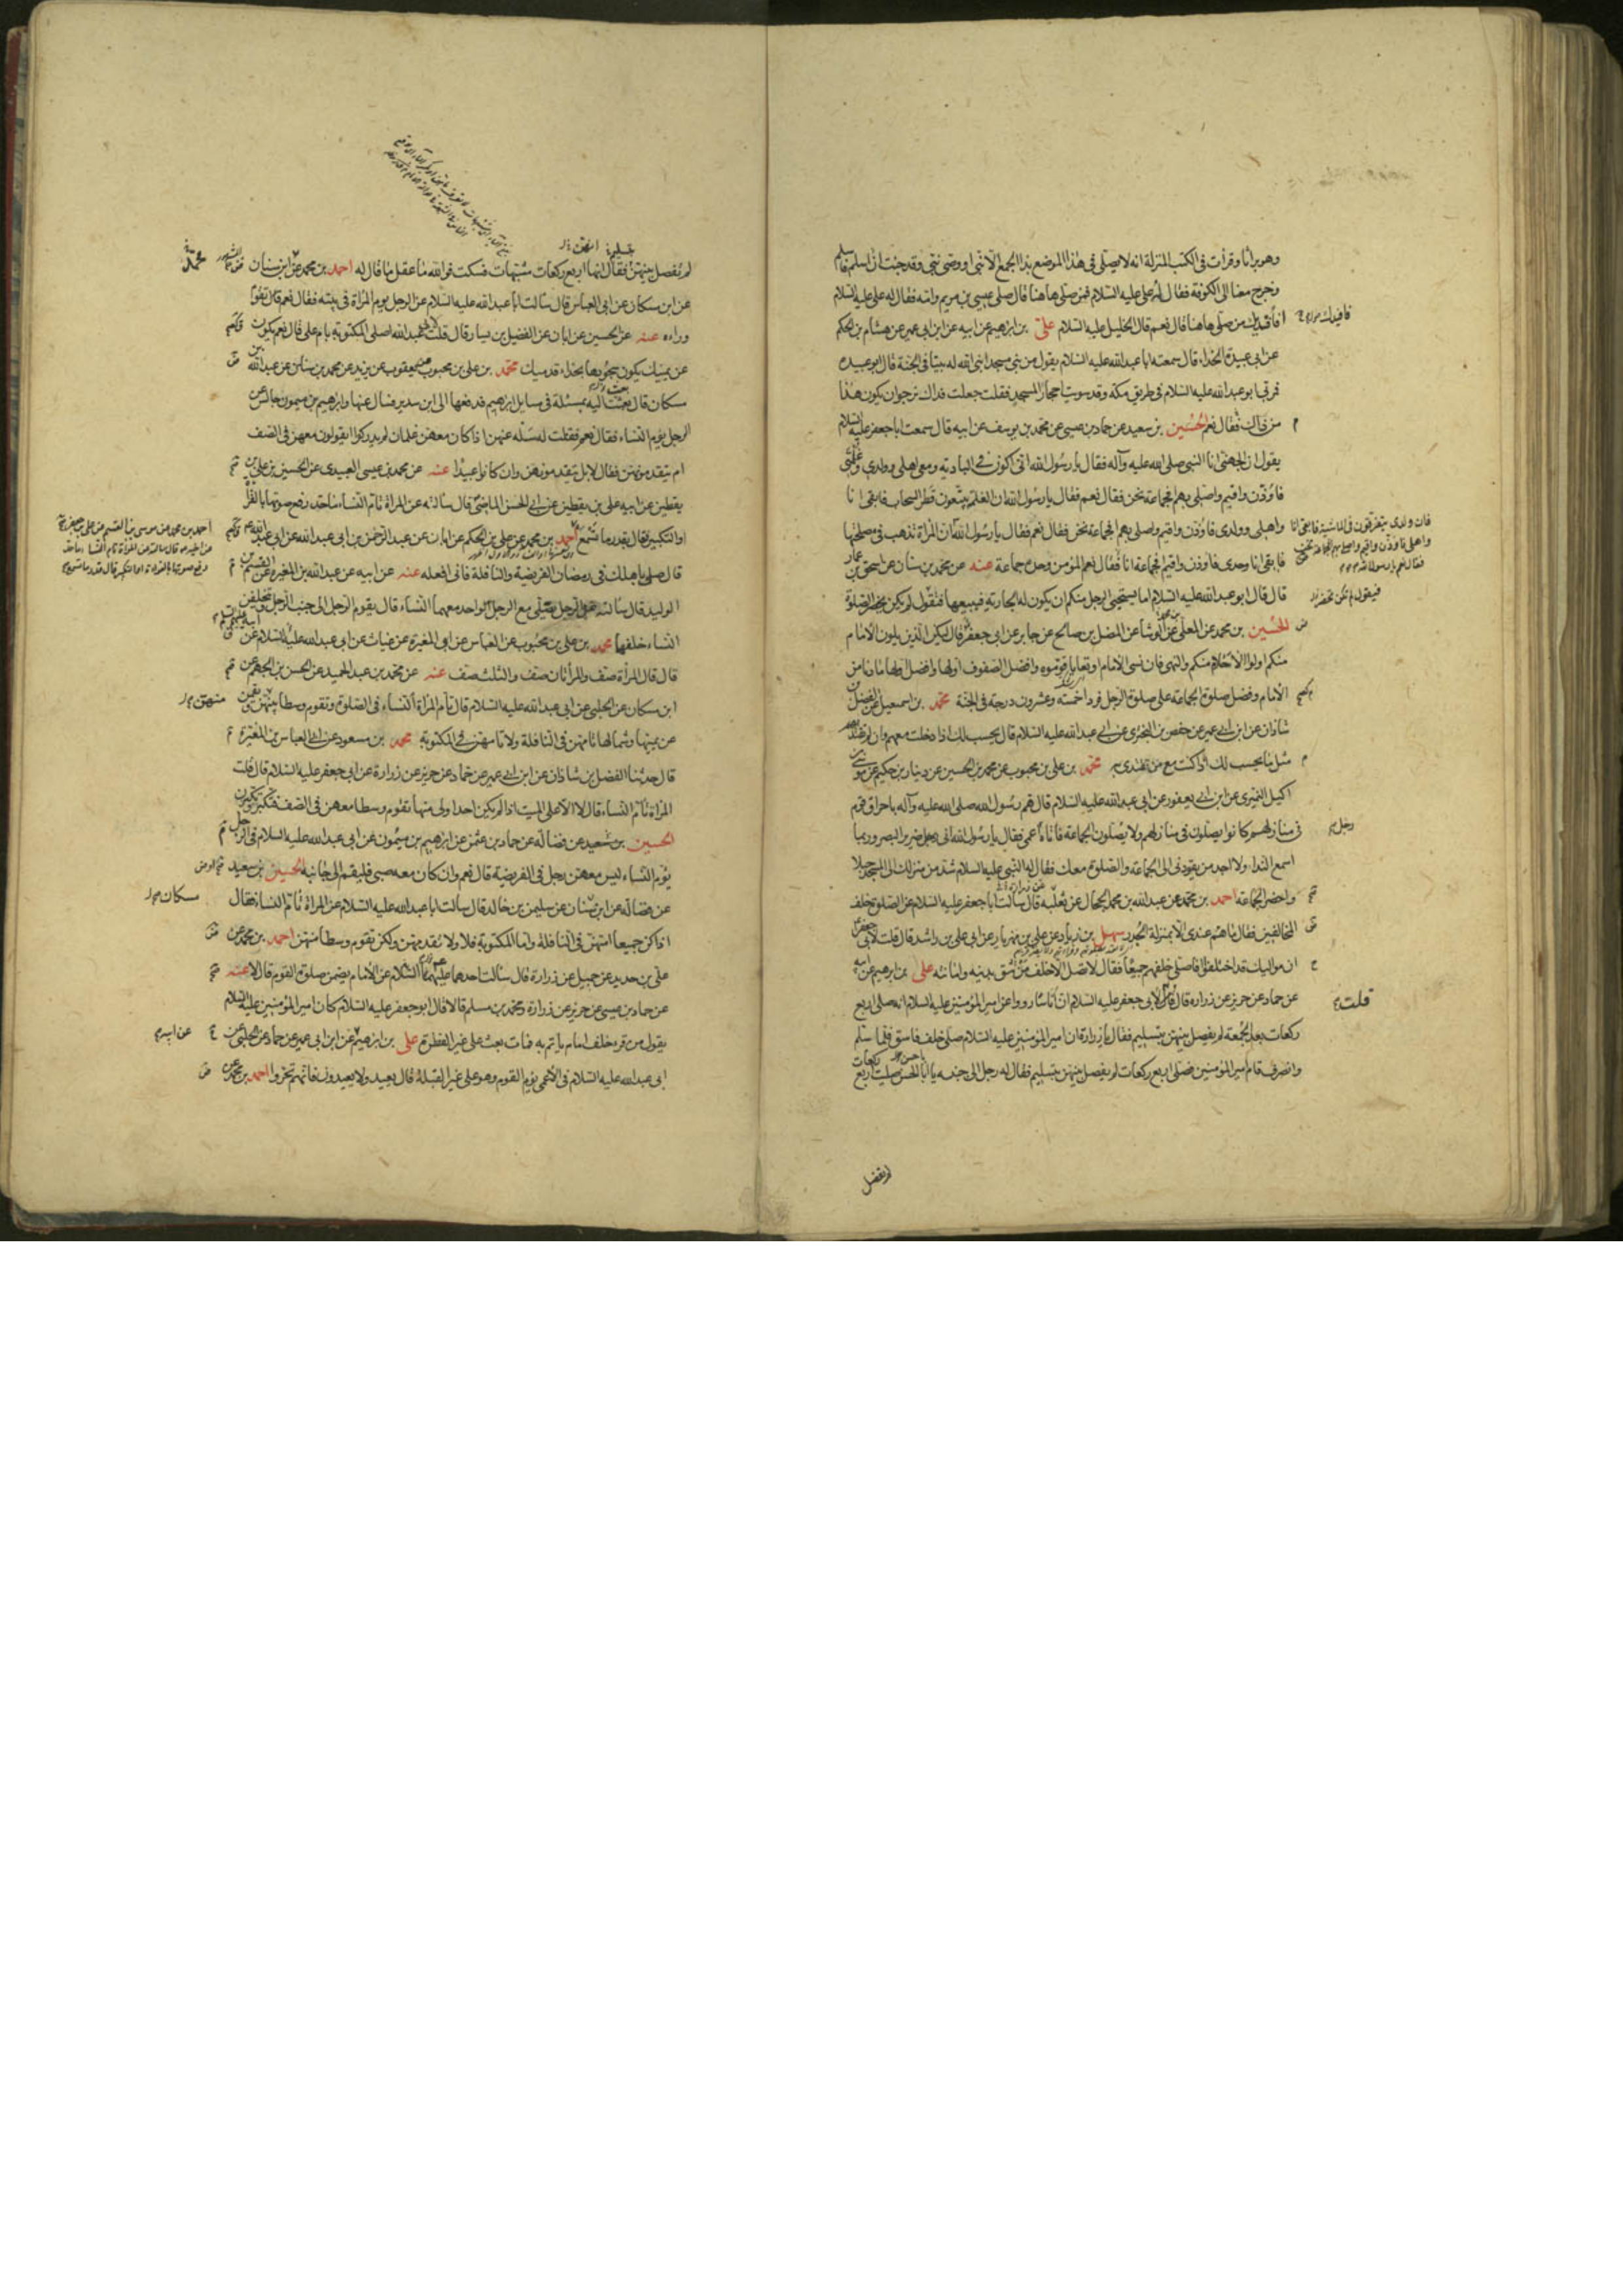 وهو براثا وقرأت فى الكتب المنزلة انه لا يصلى فى هذا الموضع بذا الجمع الا نبى او وصى نبى وقد جئت ان اسلم فاسلم
وخرج معنا الى الكوفة فقال له على عليه السلام فمن صلى هاهنا قال صلى عيسى بن مريم وامه فقال له على عليه السلام
افأفيدك من صلى هاهنا قال نعم قال الخليل عليه السلام على بن ابرهيم عن ابيه عن ابن ابى عمير عن هشام بن الحكم
عن ابى عبيدة الحذاء قال سمعت ابا عبد الله عليه السلام يقول من بنى مسجدا بنى الله له بيتا فى الجنة قال ابو عبيدة
فمر بى ابو عبد الله عليه السلام فى طريق مكة وقد سويت احجار المسجد فقلت جعلت فداك نرجو ان يكون هذا
من ذاك فقال نعم الحسين بن سعيد عن حماد بن عيسى عن محمد بن يوسف عن ابيه قال سمعت ابا جعفر عليه السلام
يقول ان الجهنى اتا النبى صلى الله عليه وآله فقال يا رسول الله انى اكون فى البادية ومعى اهلى وولدى وغلمتى
فاؤذن واقيم واصلى بهم افجماعة نحن فقال نعم فقال يا رسول الله ان الغلمة يتبعون قطر السحاب فابقى انا
واهلى وولدى فاؤذن واقيم واصلى بهم افجماعة نحن فقال نعم فقال يا رسول الله ان المرأة تذهب فى مصلحتها
فابقى انا وحدى فاوذن واقيم افجماعة انا فقال نعم المؤمن وحده جماعة عنه عن محمد بن سنان عن اسحق بن عمار
قال قال ابو عبد الله عليه السلام اما يستحيى الرجل منكم ان يكون له الجارية فيبيعها فتقول لم يكن يحضر الصلوة
الحسين بن محمد عن المعلى عن الوشا عن المفضل بن صالح عن جابر عن ابى جعفر قال ليكن الذين يلون الامام
منكم اولوا الاحلام منكم والنهى فان نسى الامام او تعايا قوموه وافضل الصفوف اولها وافضل اولها ما دنا من
الامام وفضل صلوة الجماعة على صلوة الرجل فردا خمسة وعشرون درجة فى الجنة محمد بن اسمعيل عن الفضل بن
شاذان عن ابن ابى عمير عن حفص بن البخترى عن ابى عبد الله عليه السلام قال يحسب لك اذا دخلت معهم وان لم تقتد بهم
مثل ما يحسب لك اذا كنت مع من تقتدى به محمد بن على بن محبوب عن محمد بن الحسين عن دينار بن حكيم عن موسى بن
اكيل النميرى عن ابن ابى يعفور عن ابى عبد الله عليه السلام قال هم رسول الله صلى الله عليه وآله باحراق قوم
فى منازلهم كانوا يصلون فى منازلهم ولا يصلون الجماعة فاتاه اعمى فقال يا رسول الله انى رجل ضرير البصر وربما
اسمع النداء ولا اجد من يقودنى الى الجماعة والصلوة معك فقال له النبى عليه السلام شد من منزلك الى المسجد حبلا
واحضر الجماعة احمد بن محمد عن عبد الله بن محمد الحجال عن ثعلبة قال سالت ابا جعفر عليه السلام عن الصلوة خلف
المخالفين فقال ما هم عندى الا بمنزلة الجدر سهل بن زياد عن على بن مهزيار عن ابى على بن راشد قال قلت لابى جعفر
ان مواليك قد اختلفوا فاصلى خلفهم جميعا فقال لا تصل الا خلف من تثق بدينه وامانته على بن ابرهيم عن ابيه
عن حماد عن حريز عن زرارة قال لابى جعفر عليه السلام ان اناسا رووا عن امير المؤمنين عليه السلام انه صلى اربع
ركعات بعد الجمعة لم يفصل بينهن بتسليم فقال يا زرارة ان امير المؤمنين عليه السلام صلى خلف فاسق فلما سلم
وانصرف قام امير المؤمنين فصلى اربع ركعات لم يفصل بينهن بتسليم فقال له رجل الى جنبه يا ابا الحسن صليت اربع ركعات
لم يفصل
فان ولدى يتفرقون فى الماشية فابقى انا
واهلى فاوذن واقيم واصلى بهم افجماعة نحن
فقال نعم يا رسول الله
قلت
رجل
لم يفصل بينهن فقال انها اربع ركعات مشبهات فسكت فوالله ما عقل ما قال له احمد بن محمد عن ابن سنان
عن ابن مسكان عن ابى العباس قال سالت ابا عبد الله عليه السلام عن الرجل يوم المرأة فى بيته فقال نعم قال تقوم
وراءه عنه عن الحسين عن ابان عن الفضيل بن يسار قال قلت لابى عبد الله اصلى المكتوبة بام على قال نعم يكون
عن يمينك يكون سجودها بحذاء قدميك محمد بن على بن محبوب عن يعقوب بن يزيد عن محمد بن سنان عن عبد الله بن
مسكان قال بعثت اليه بمسئلة فى مسايل ابرهيم فدفعها الى ابن سدير فسال عنها وابرهيم بن ميمون جالس عن
الرجل يؤم النساء فقال نعم فقلت له سله عنهن اذا كان معهن غلمان لم يدركوا ايقومون معهن فى الصف
ام يتقدمونهن فقال لا بل يتقدمونهن وان كانوا عبيدا عنه عن محمد بن عيسى العبيدى عن الحسين بن على بن
يقطين عن ابيه على بن يقطين عن ابى الحسن الماضى قال سالته عن المرأة تام النساء ما حد رفع صوتها بالقراءة
او التكبير فقال بقدر ما تسمع احمد بن محمد عن على بن الحكم عن ابان عن عبد الرحمن بن ابى عبد الله عن ابى عبد الله
قال صلى باهلك فى رمضان الفريضة والنافلة فانى افعله عنه عن ابيه عن عبد الله بن المغيرة عن القسم بن
الوليد قال سالته عن الرجل يصلى مع الرجل الواحد معهما النساء قال يقوم الرجل الى جنب الرجل ويتخلفن
النساء خلفهما محمد بن على بن محبوب عن العباس عن ابى المغيرة عن غياث عن ابى عبد الله عليه السلام عن
قال قال المرأة صف والمرأتان صف والثلث صف عنه عن محمد بن عبد الحميد عن الحسن بن الجهم عن
ابن مسكان عن الحلبى عن ابى عبد الله عليه السلام قال تام المرأة النساء فى الصلوة وتقوم وسطا بينهن
عن يمينها وشمالها تامهن فى النافلة ولا تامهن فى المكتوبة محمد بن مسعود عن ابى العباس بن المغيرة
قال حدثنا الفضل بن شاذان عن ابن ابى عمير عن حماد عن حريز عن زرارة عن ابى جعفر عليه السلام قال قلت
المرأة تام النساء قال لا الا على الميت اذا لم يكن احد اولى منها تقوم وسطا معهن فى الصف فتكبر ويكبرن
الحسين بن سعيد عن فضالة عن حماد بن عثمن عن ابرهيم بن ميمون عن ابى عبد الله عليه السلام فى الرجل
يؤم النساء ليس معهن رجل فى الفريضة قال نعم وان كان معه صبى فليقم الى جانبه الحسين بن سعيد
عن فضالة عن ابن سنان عن سليمن بن خالد قال سالت ابا عبد الله عليه السلام عن المرأة تام النساء فقال
اذا كن جميعا امتهن فى النافلة واما المكتوبة فلا ولا تقدمهن ولكن تقوم وسطا منهن احمد بن محمد عن
على بن حديد عن جميل عن زرارة قال سالت احدهما عليهما السلام عن الامام يضمن صلوة القوم قال لا عنه
عن حماد بن عيسى عن حريز عن زرارة ومحمد بن مسلم قالا قال ابو جعفر عليه السلام كان امير المؤمنين عليه السلام
يقول من قرء خلف امام ياتم به فمات بعث على غير الفطرة على بن ابرهيم عن ابن ابى عمير عن حماد عن الحلبى عن
ابى عبد الله عليه السلام فى الاعمى يؤم القوم وهو على غير القبلة قال يعيد ولا يعيدون فانهم تحروا احمد بن محمد عن
احمد بن محمد عن موسى بن القسم عن على بن جعفر
عن اخيه قال سالته عن المرأة تام النساء ما حد
رفع صوتها بالقراءة او التكبير قال قدر ما تسمع
مسكان
عن ابيه